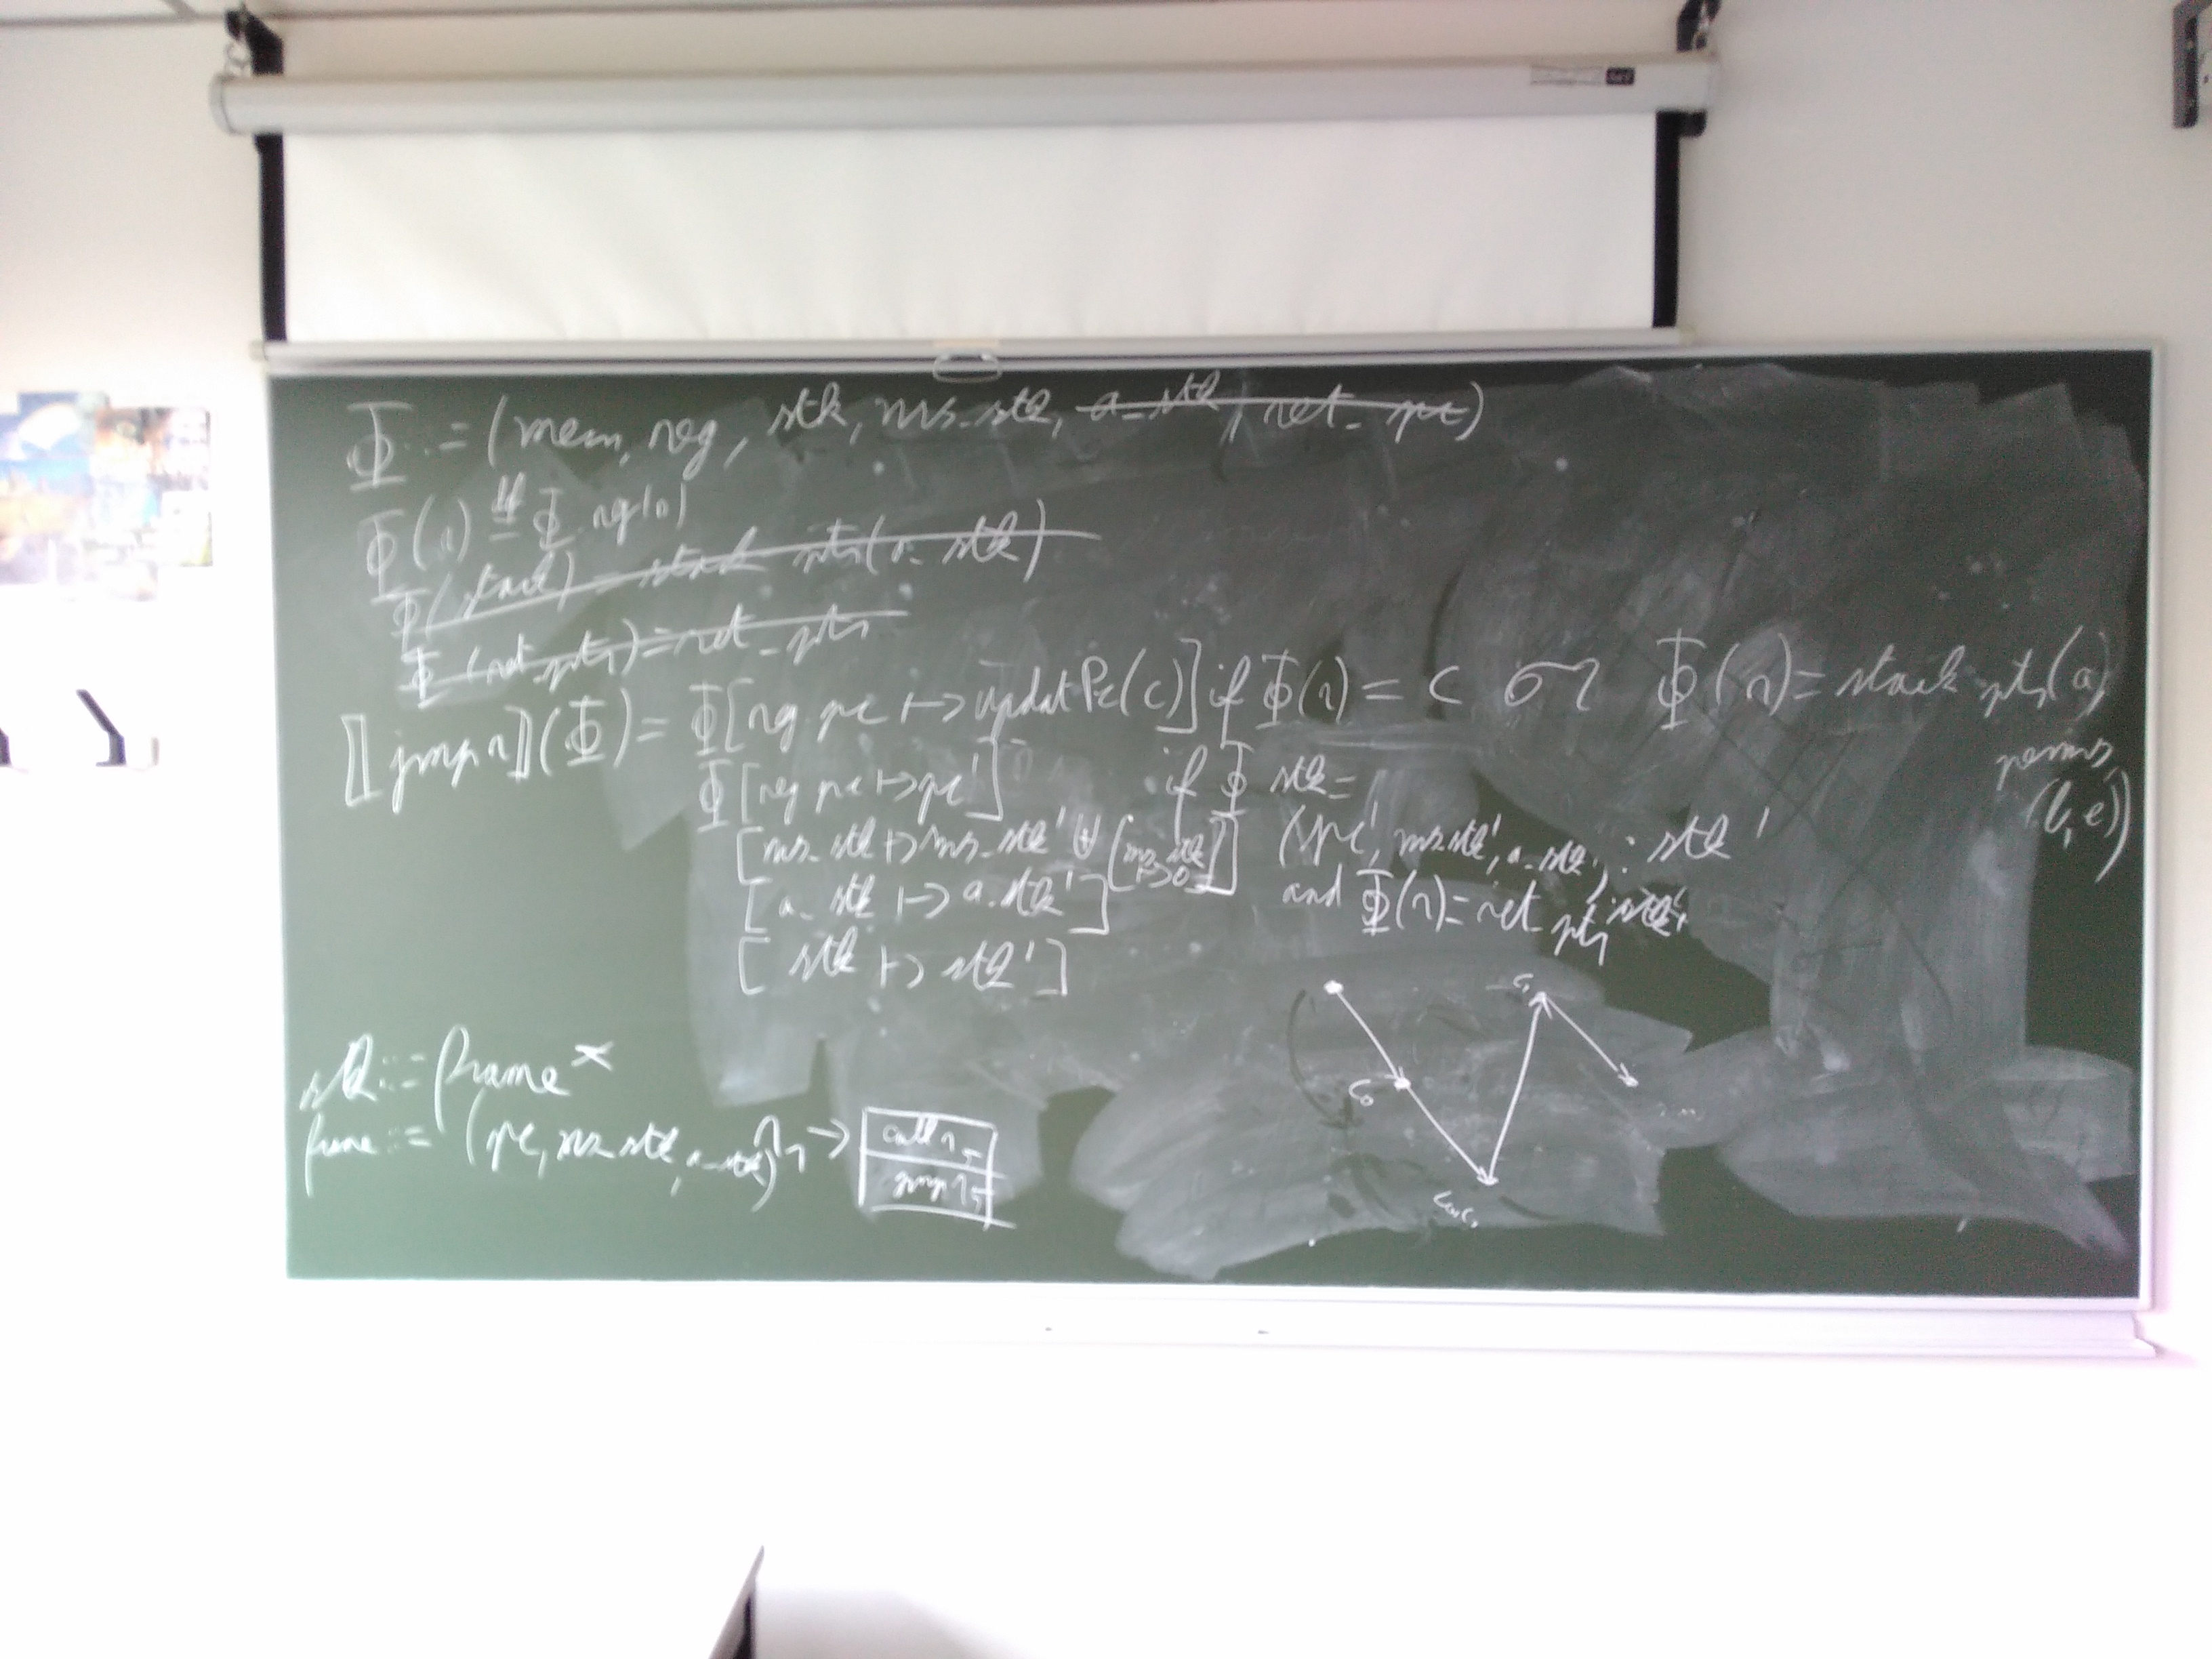 Φ ::= (mem, reg, stk, ms_stk, a_stk, ret_pc)
Φ(r) def= Φ.reg(r)
Φ(stack) = stack ptr(a_stk)
Φ(ret_ptr) = ret_ptr
⟦jmp r⟧(Φ) = Φ[reg.pc ↦ updatPc(c)] if Φ(r) = c or Φ(r) = stack ptr(a,
perms,
(b,e))
Φ[reg.pc ↦ pc'] if Φ.stk =
[ms_stk ↦ ms_stk' ⊎ [ms_stk ↦ 0]] (pc', ms_stk', a_stk') : stk'
[a_stk ↦ a_stk'] and Φ(r) = ret_ptr
[stk ↦ stk']
c₁
stk ::= frame*
c₀
frame ::= (pc, ms_stk, a_stk) → call r
jmp r